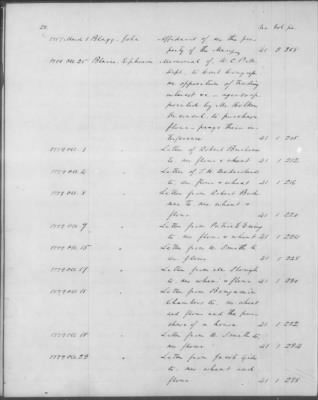 28
No. Vol. pa.
1777 March 8 Blagg, John Affidavit of on the
perty of the 41 8 255
Blaine, Ephraim Memorial of
Dept. to Cont Congress
on opposition of trading
interest
pointed by Mr Holker
to purchase
flour - prays their in-
terference 41 1 208
1779 Oct. 1 " Letter of Robert Buchanan
to on flour & wheat 41 1 212
1779 Oct. 6 " Letter of
to on flour & wheat 41 1 216
1779 Oct. 8 " Letter from Robert Buch-
anan to on wheat &
flour 41 1 220
1779 Oct. 9 " Letter from Patrick Ewing
to on flour & wheat 41 1 224
1779 Oct. 15 " Letter from W. Smith to
on flour 41 1 228
1779 Oct. 17 " Letter from
to on wheat & flour 41 1 230
1779 Oct. " Letter from Benjamin
Chambers to on wheat
and flour and the pur-
chase of a house 41 1 232
1779 Oct. 18 " Letter from W. Smith to
on flour 41 1 234
1779 Oct. 23 " Letter from Jacob
to on wheat and
flour 41 1 238